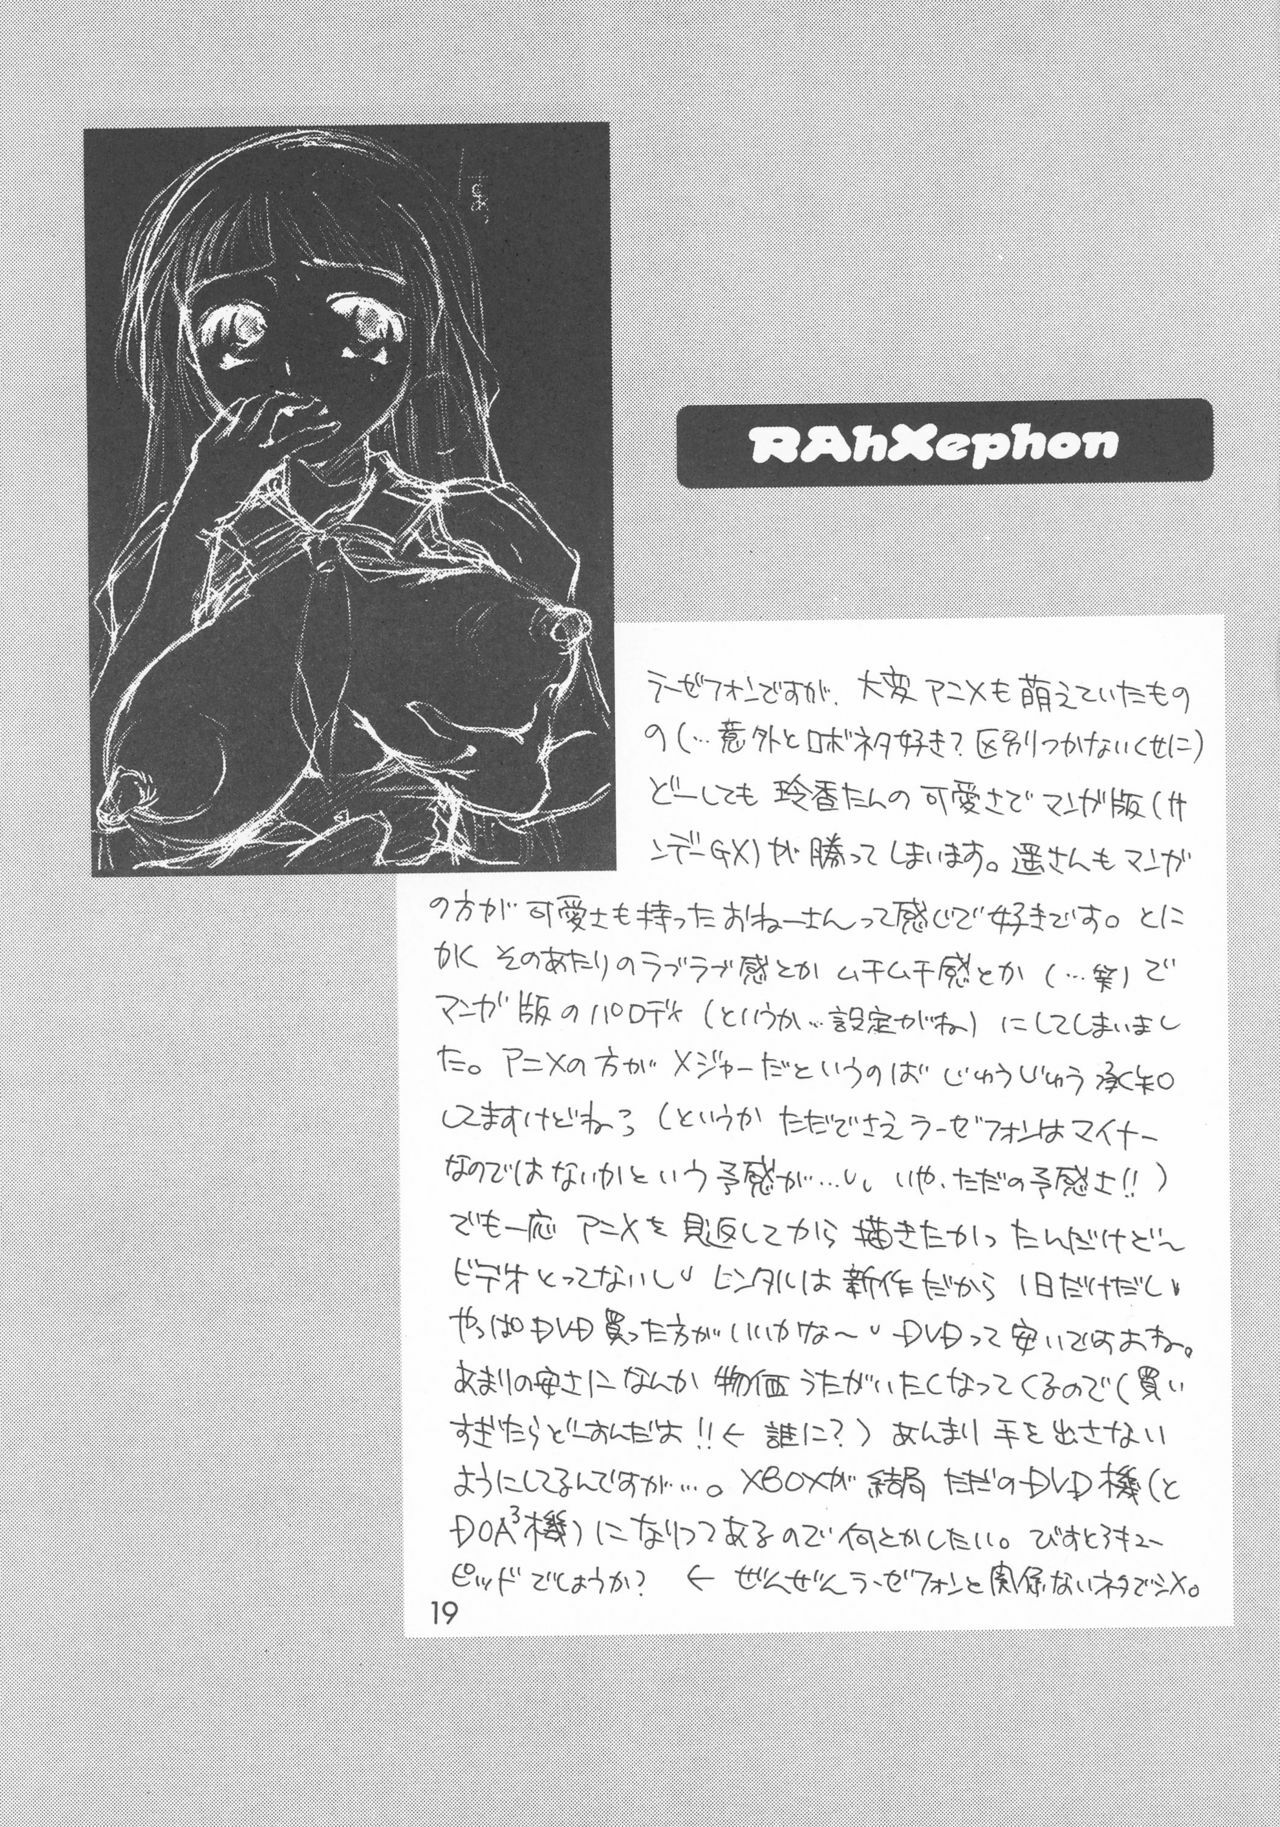 RAhXephon
ラーゼフォンですが、大変アニメも萌えていたもの
の(…意外とロボネタ好き?区別つかないくせに)
どーしても玲香たんの可愛さでマンガ版(サ
ンデーGX)が勝ってしまいます。遥さんもマンガ
の方が可愛さも持ったおねーさんって感じで好きです。とに
かくそのあたりのラブラブ感とかムチムチ感とか(…笑)で
マンガ版のパロディ(というか…設定がね)にしてしまいまし
た。アニメの方がメジャーだというのはじゅうじゅう承知
してますけどねぅ(というかただでさえラーゼフォンはマイナー
なのではないかという予感が…いや、ただの予感さ!!)
でも一応アニメを見返してから描きたかったんだけど〜
ビデオとってないしレンタルは新作だから1日だけだし
やっぱDVD買った方がいいかな〜DVDって安いですよね。
あまりの安さになんか物価うたがいたくなってくるので(買い
すぎたらどーすんだよ!!←誰に?)あんまり手を出さない
ようにしてるんですが…。XBOXが結局ただのDVD機(と
DOA3機)になりつつあるので何とかしたい。びすとろキュー
ピッドでしょうか?←ぜんぜんラーゼフォンと関係ないネタでシメ。
19